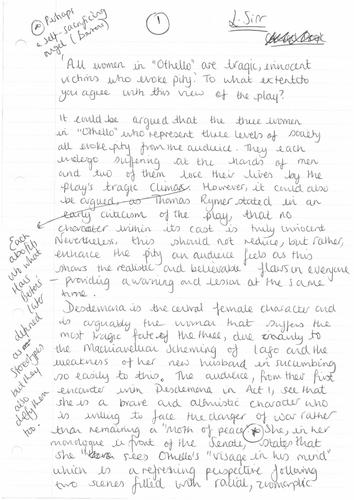 Perhaps
a self-sacrificing
angel (
1
L. Sirr
'All women in "Othello" are tragic, innocent
victims who evoke pity'. To what extent do
you agree with this view of the play?
It could be argued that the three women
in "Othello" who represent three levels of society
all evoke pity from the audience. They each
undergo suffering at the hands of men
and two of them lose their lives by the
play's tragic climax. However, it could also
be argued, as Thomas Rymer stated in an
early criticism of the play, that no
character within its cast is truly innocent
Nevertheless, this should not reduce, but rather,
enhance the pity an audience feels as this
shows the realistic and believable flaws in everyone
- providing a warning and lesson at the same
time.
Each
They
into
defined
as
stereotypes
but they
also
defy them
too.
Desdemona is the central female character and
is arguably the woman that suffers the
most tragic fate of the three, due mainly to
the Machiavellian scheming of Iago and the
weakness of her new husband in succumbing
so easily to this. The audience, from their first
encounter with Desdemona in Act 1, see that
she is a brave and altruistic character who
is willing to face the danger of war rather
than remaining a "moth of peace". She, in her
monologue in front of the Senate, states that
she "sees Othello's "visage in his mind"
which is a refreshing perspective following
two scenes filled with racial, zoomorphic